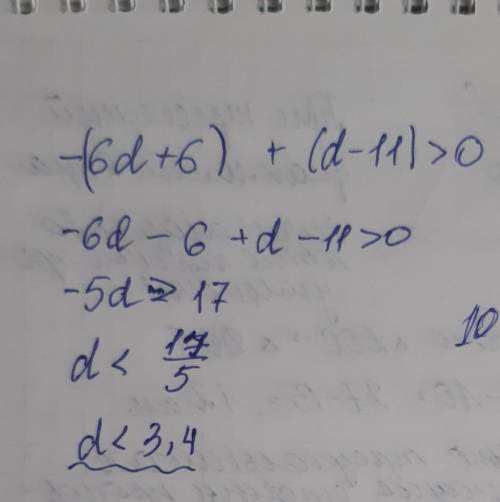 -(6d+6) + (d-11)>0
-6d - 6 + d - 11 >0
-5d > 17
d < 17/5
d < 3,4
10